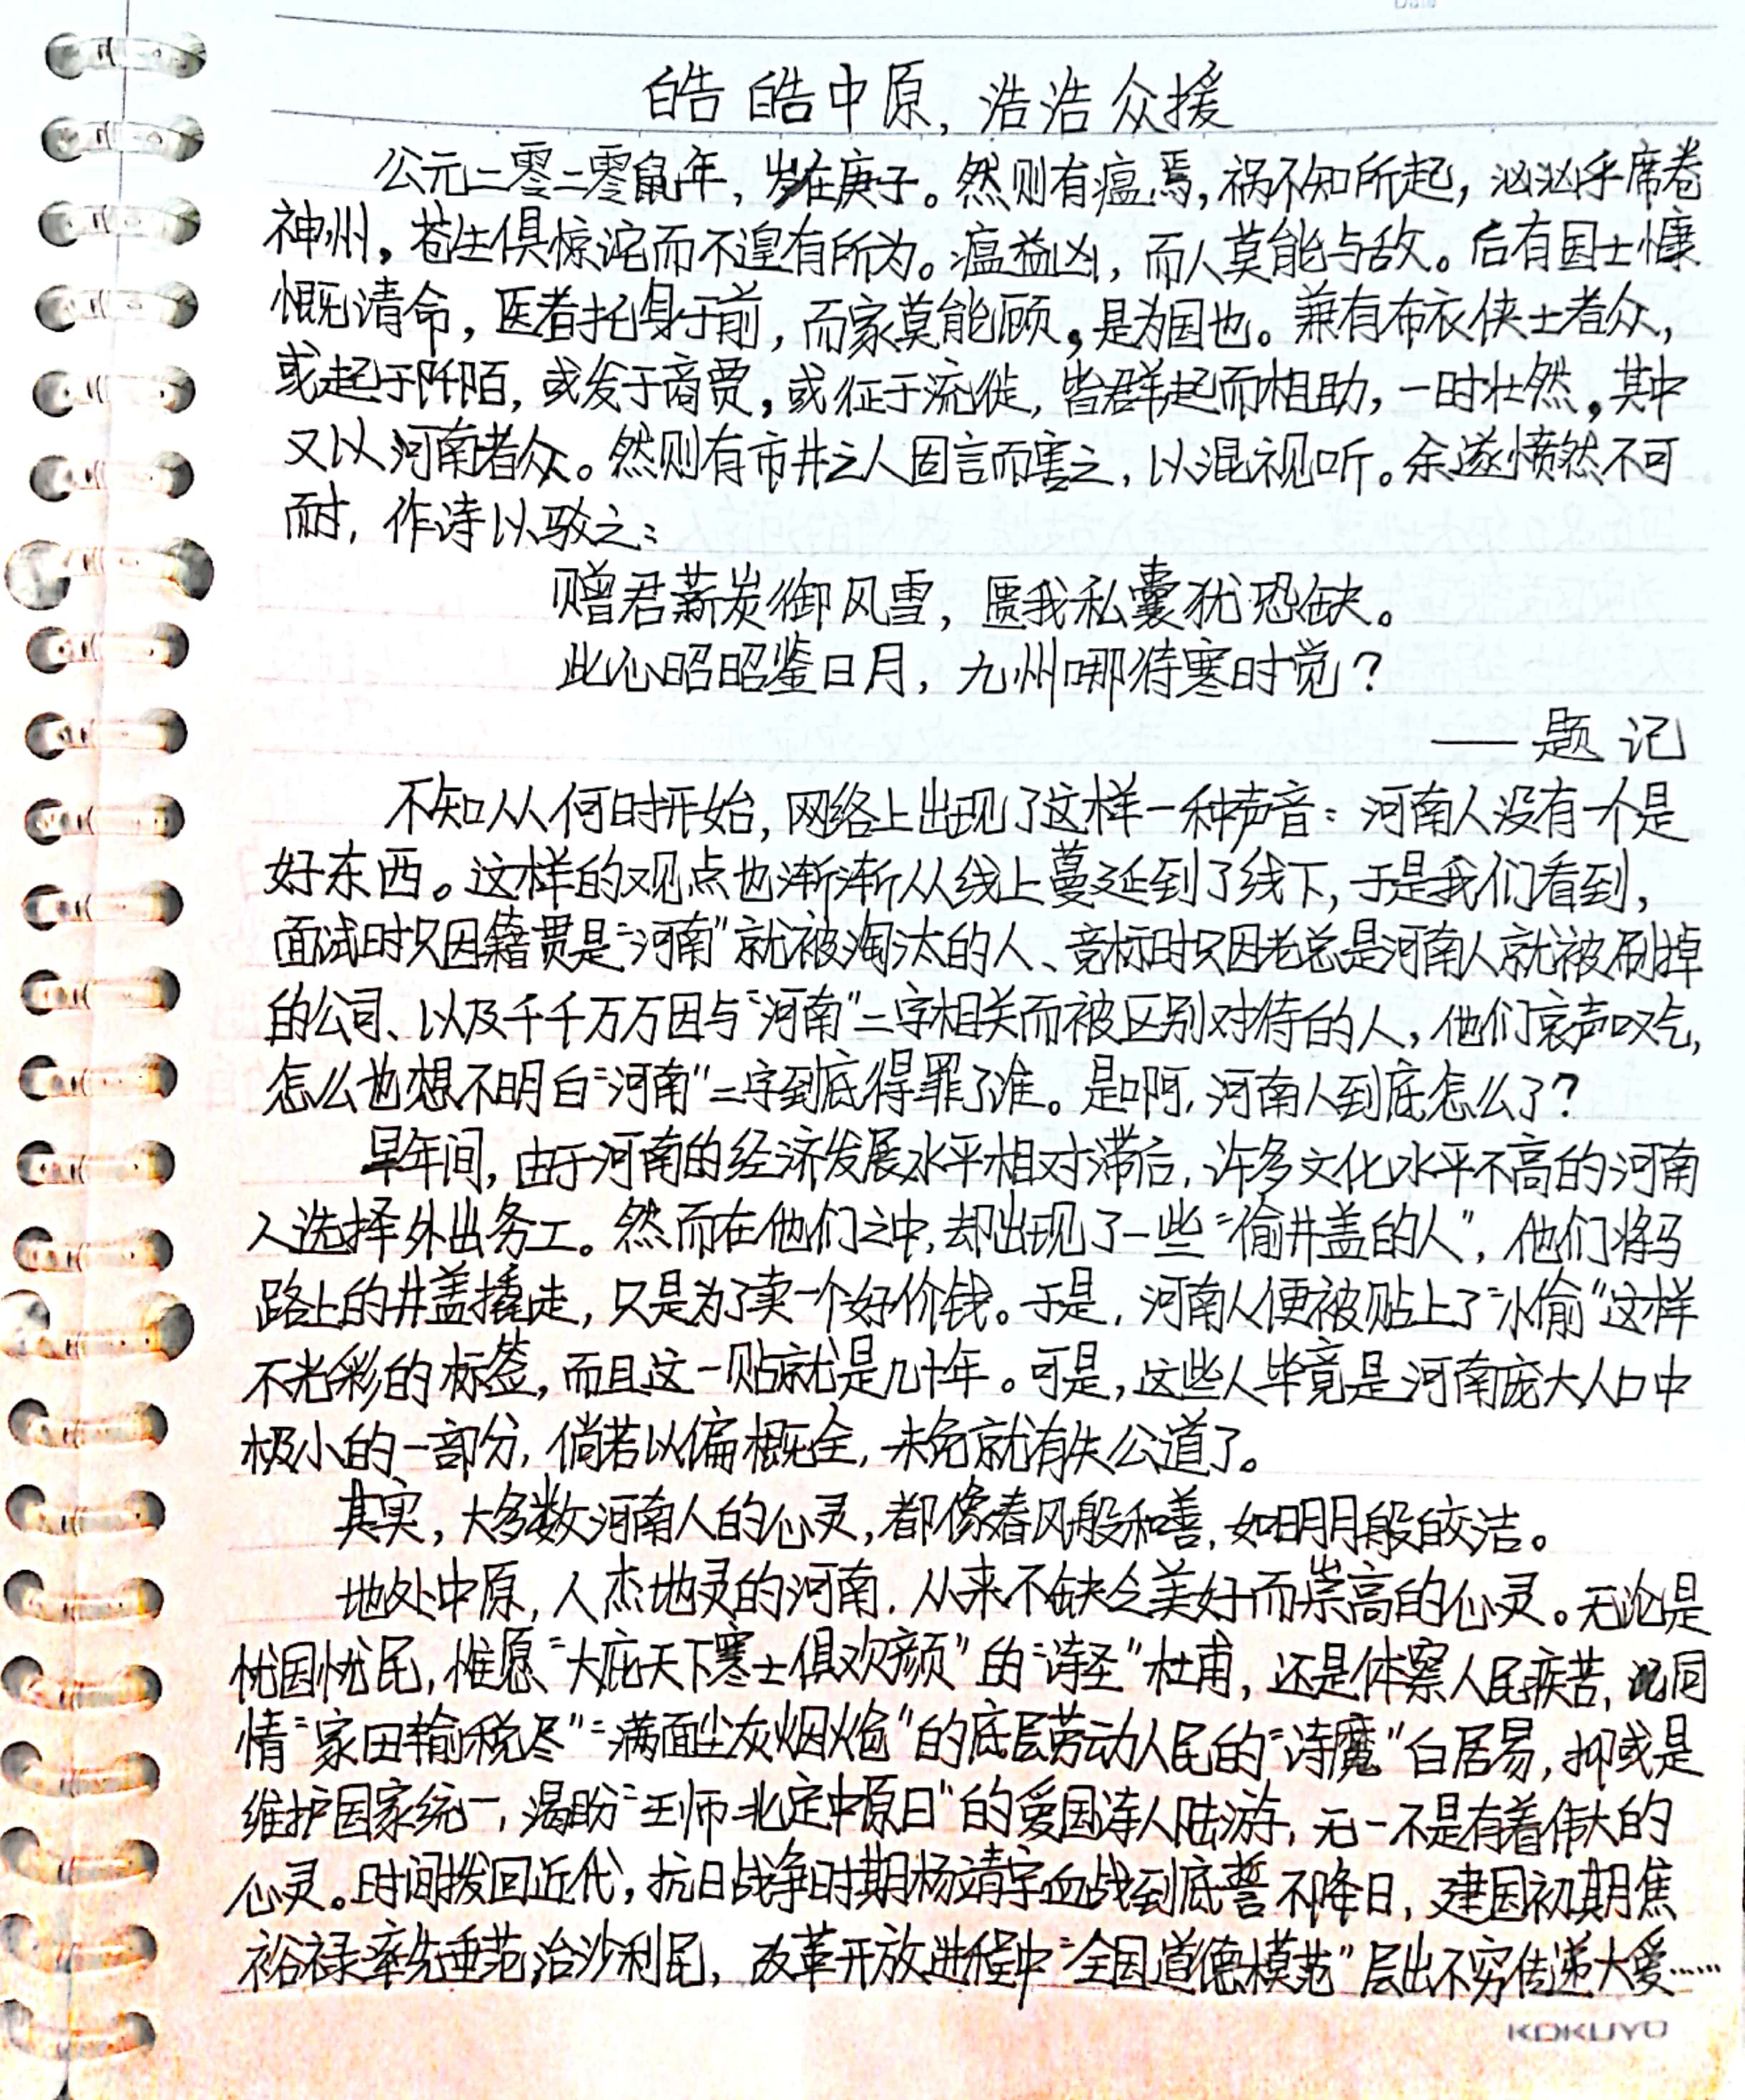 皓皓中原，浩浩众援
公元二零二零鼠年，岁在庚子。然则有瘟焉，祸不知所起，汹汹乎席卷
神州，苍生俱惊诧而不遑有所为。瘟益凶，而人莫能与敌。后有国士慷
慨请命，医者托身于前，而家莫能顾，是为国也。兼有布衣侠士者众，
或起于阡陌，或发于商贾，或征于流徙，皆群起而相助，一时壮然，其中
又以河南者众。然则有市井之人固言而害之，以混视听。余遂愤然不可
耐，作诗以驳之：
赠君薪炭御风雪，匮我私囊犹恐缺。
此心昭昭鉴日月，九州哪待寒时觉？
——题记
不知从何时开始，网络上出现了这样一种声音：河南人没有一个是
好东西。这样的观点也渐渐从线上蔓延到了线下，于是我们看到，
面试时只因籍贯是“河南”就被淘汰的人、竞标时只因老总是河南人就被刷掉
的公司、以及千千万万因与“河南”二字相关而被区别对待的人，他们哀声叹气，
怎么也想不明白“河南”二字到底得罪了谁。是啊，河南人到底怎么了？
早年间，由于河南的经济发展水平相对滞后，许多文化水平不高的河南
人选择外出务工。然而在他们之中，却出现了一些“偷井盖的人”，他们将马
路上的井盖撬走，只是为了卖一个好价钱。于是，河南人便被贴上了“小偷”这样
不光彩的标签，而且这一贴就是几十年。可是，这些人毕竟是河南庞大人口中
极小的一部分，倘若以偏概全，未免就有失公道了。
其实，大多数河南人的心灵，都像春风般和善，如明月般皎洁。
地处中原，人杰地灵的河南，从来不缺乏美好而崇高的心灵。无论是
忧国忧民，惟愿“大庇天下寒士俱欢颜”的“诗圣”杜甫，还是体察人民疾苦，同
情“家田输税尽”“满面尘灰烟火色”的底层劳动人民的“诗魔”白居易，抑或是
维护国家统一，渴盼“王师北定中原日”的爱国诗人陆游，无一不是有着伟大的
心灵。时间拨回近代，抗日战争时期杨靖宇血战到底誓不降日，建国初期焦
裕禄率先垂范治沙利民，改革开放进程中“全国道德模范”层出不穷传递大爱……
KOKUYO